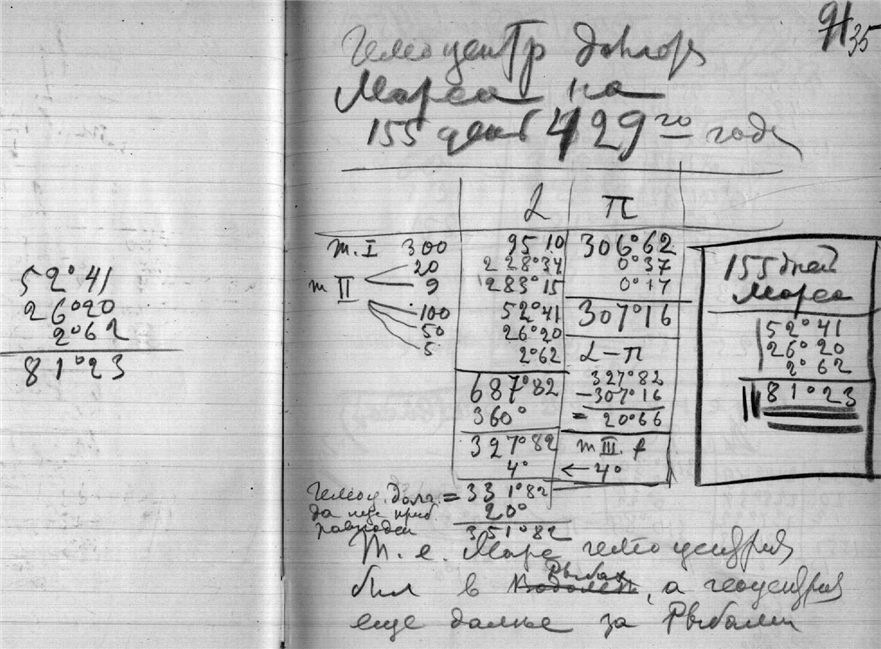 52°41
26°20
2°62
81°23
91/35
Гелиоцентр долгота
Марса на
155 день 429го года
L π
т. I 300 95 10 306°62
20 228°34 0°37
т II 9 283°15 0°17
100 52°41 307°16
50 26°20
5 2°62 L-π
687°82 327°82
360° -307°16
= 20°66
327°82 т III. f
4° ← 4°
Гелиоц. долг. = 331°82
да еще приб 20°
351°82
155 дней
Марса
52°41
26°20
2°62
81°23
Т. е. Марс гелиоцентрич
был в Водолее Рыбах, а геоцентрич
еще дальше за Рыбами